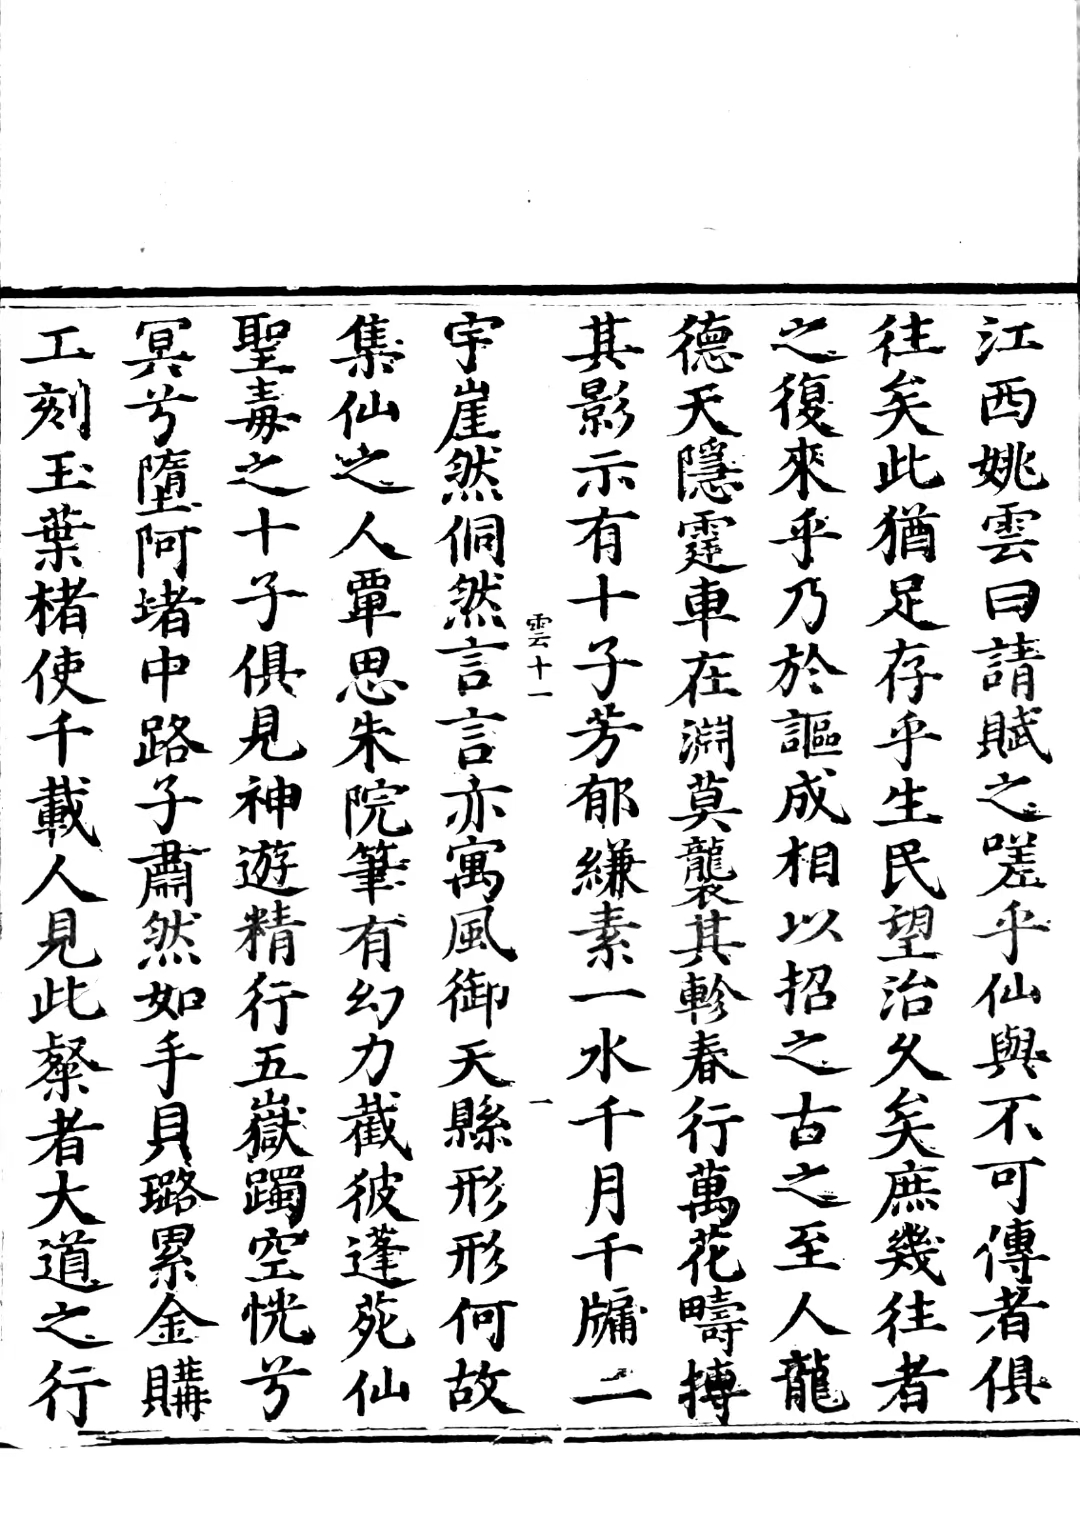 江西姚雲曰請賦之嗟乎仙與不可傳者俱
往矣此猶足存乎生民望治久矣庶幾往者
之復來乎乃於謳成相以招之古之至人龍
德天隱霆車在淵莫襲其軫春行萬花疇摶
其影示有十子芳郁縑素一水千月千牖二
雲十一
一
宇崖然侗然言言亦寓風御天縣形形何故
集仙之人覃思朱院筆有幻力截彼蓬苑仙
聖毒之十子俱見神遊精行五嶽躅空恍兮
冥兮墮阿堵中路子肅然如手貝璐累金購
工刻玉葉楮使千載人見此粲者大道之行